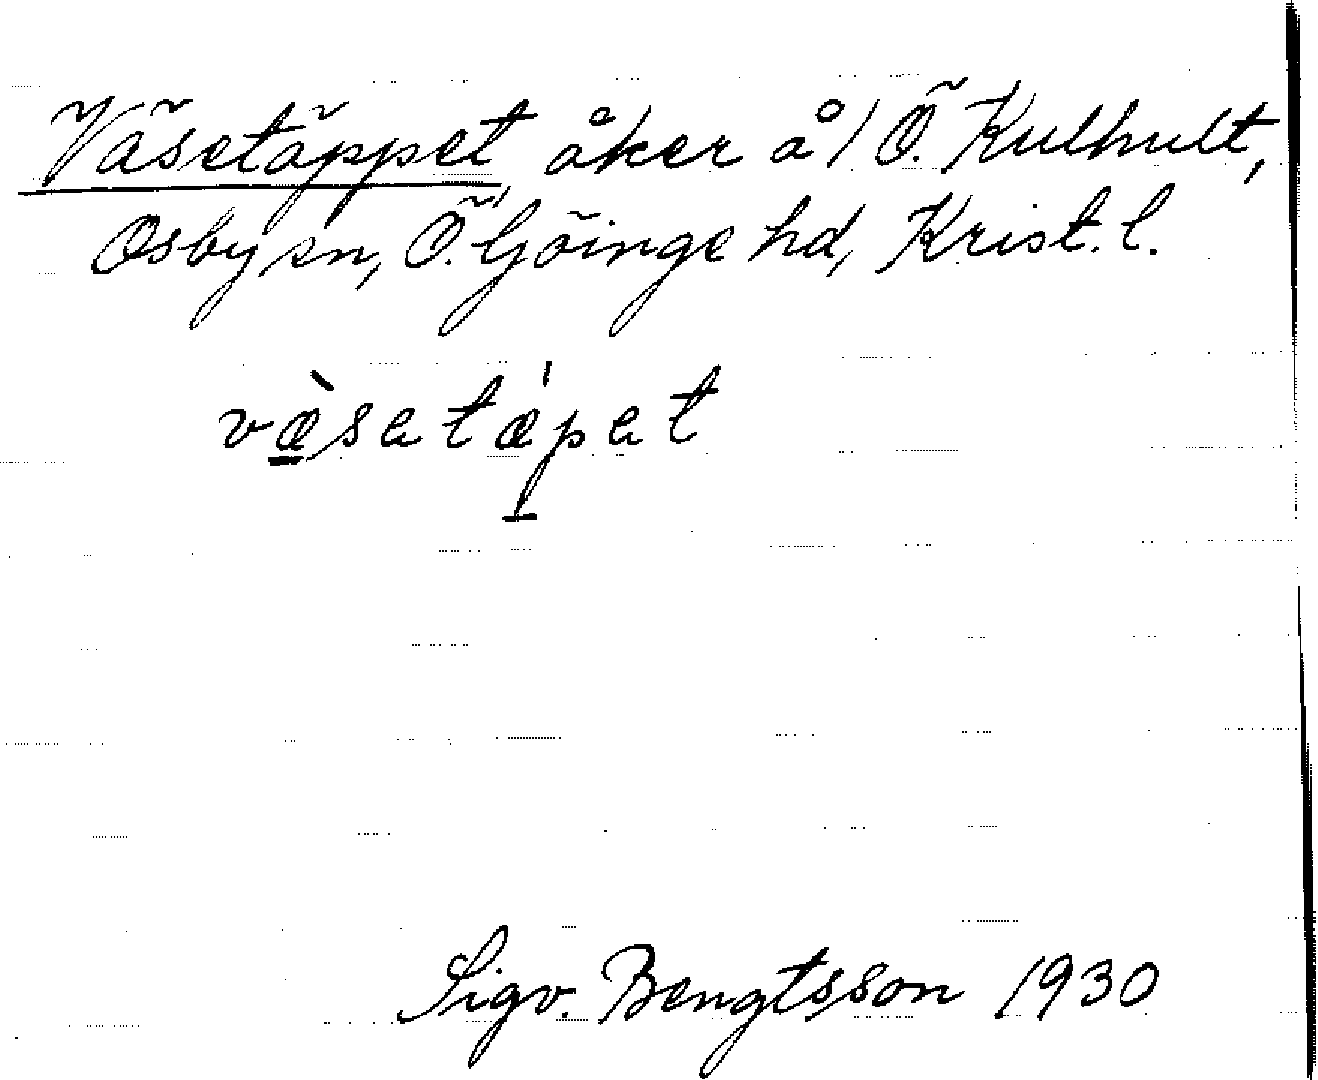 Väsetäppet åker å / Ö. Kulhult,
Osby sn, Ö. Göinge hd, Krist. l.
væ̀setǽpet
Sigv. Bengtsson 1930